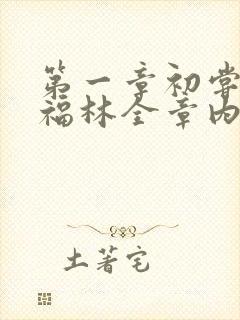 第一章初尝
福林全章内
土著宅